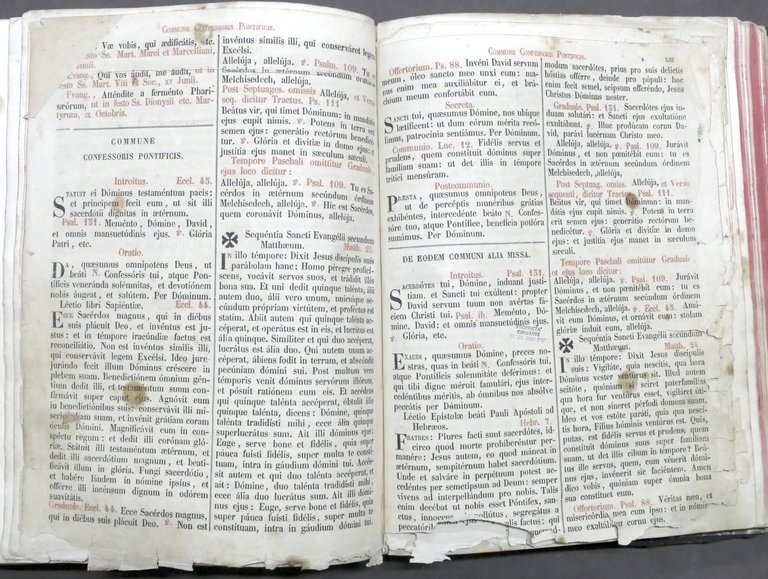 COMMUNE CONFESSORIS PONTIFICIS.
Væ volis, qui ædificátis, etc.
In festo Ss. Mart. Marci et Marcelliani,
Junii.
Evang., Qui vos áudit, me áudit, ut in
festo Ss. Mart. Viti et Soc., xv Junii.
Evang., Atténdite a ferménto Phari-
sæórum, ut in festo Ss. Dionysii etc. Mar-
tyrum, ix Octobris.
COMMUNE
CONFESSORIS PONTIFICIS.
Introitus. Eccl. 45.
STATUIT ei Dóminus testaméntum pacis:
et príncipem fecit eum, ut sit illi
sacerdótii dígnitas in ætérnum.
Psal. 131. Meménto, Dómine, David,
et omnis mansuetúdinis ejus. ℣. Glória
Patri, etc.
Oratio.
DA, quæsumus omnípotens Deus, ut
beáti N. Confessóris tui, atque Pon-
tíficis veneránda solémnitas, et devotiónem
nobis áugeat, et salútem. Per Dóminum.
Léctio libri Sapiéntiæ. Eccl. 44.
ECCE Sacérdos magnus, qui in diébus
suis plácuit Deo, et invéntus est jus-
tus: et in témpore iracúndiæ factus est
reconciliátio. Non est invéntus símilis illi,
qui conservávit legem Excélsi. Ideo jure-
jurándo fecit illum Dóminus créscere in
plebem suam. Benedictiónem ómnium gén-
tium dedit illi, et testaméntum suum con-
firmávit super caput ejus. Agnóvit eum
in benedictiónibus suis: conservávit illi mi-
sericórdiam suam, et invénit grátiam coram
óculis Dómini. Magnificávit eum in con-
spéctu regum: et dedit illi corónam gló-
riæ. Státuit illi testaméntum ætérnum, et
dedit illi sacerdótium magnum, et beati-
ficávit illum in glória. Fungi sacerdótio,
et habére láudem in nómine ipsíus, et
offérre illi incénsum dignum in odórem
suavitátis.
Graduale. Eccl. 44. Ecce Sacérdos magnus,
qui in diébus suis plácuit Deo. ℣. Non est
invéntus símilis illi, qui conserváret legem
Excélsi.
Allelúja, allelúja. ℣. Psalm. 109. Tu es
Sacérdos in ætérnum secúndum órdinem
Melchísedech, allelúja.
Post Septuages. omissis Allelúja, et Vers.
seq. dicitur Tractus. Ps. 111
Beátus vir, qui timet Dóminum: in mandátis
ejus cupit nimis. ℣. Potens in terra erit
semen ejus: generátio rectórum benedicé-
tur. ℣. Glória et divítiæ in domo ejus: et
justítia ejus manet in sæculum sæculi.
Tempore Paschali omittitur Graduale,
ejus loco dicitur:
Allelúja, allelúja. ℣. Psal. 109. Tu es Sa-
cérdos in ætérnum secúndum órdinem
Melchísedech, allelúja. ℣. Hic est Sacérdos,
quem coronávit Dóminus, allelúja.
✠ Sequéntia Sancti Evangélii secundum
Matthæum. Matth. 25.
IN illo témpore: Dixit Jesus discípulis suis
parábolam hanc: Homo péregre profici-
scens, vocávit servos suos, et trádidit illis
bona sua. Et uni dedit quinque talénta, álii
autem duo, álii vero unum, unicuíque se-
cúndum própriam virtútem, et proféctus est
statim. Abiit autem qui quinque talénta ac-
céperat, et operátus est in eis, et lucrátus est
ália quinque. Simíliter et qui duo accéperat,
lucrátus est ália duo. Qui autem unum ac-
céperat, ábiens fodit in terram, et abscóndit
pecúniam dómini sui. Post multum vero
témporis venit dóminus servórum illórum,
et pósuit ratiónem cum eis. Et accédens
qui quinque talénta accéperat, óbtulit ália
quinque talénta, dicens: Dómine, quinque
talénta tradidísti mihi, ecce ália quinque
superlucrátus sum. Ait illi dóminus ejus:
Euge, serve bone et fidélis, quia super
páuca fuísti fidélis, super multa te con-
stítuam, intra in gáudium dómini tui. Accés-
sit autem et qui duo talénta accéperat, et
ait: Dómine, duo talénta tradidísti mihi,
ecce ália duo lucrátus sum. Ait illi dómi-
nus ejus: Euge, serve bone et fidélis, quia
super páuca fuísti fidélis, super multa te
constítuam, intra in gáudium dómini tui.
COMMUNE CONFESSORIS PONTIFICIS. XIII
Offertorium. Ps. 88. Invéni David servum
meum, óleo sancto meo unxi eum: ma-
nus enim mea auxiliábitur ei, et brá-
chium meum confortábit eum.
Secreta.
SANCTI tui, quæsumus Dómine, nos ubíque
lætíficent: ut dum eórum mérita recó-
limus, patrocínia sentiámus. Per Dóminum.
Communio. Luc. 12. Fidélis servus et
prudens, quem constítuit dóminus super
famíliam suam: ut det illis in témpore
trítici mensúram.
Postcommunio.
PRÆSTA, quæsumus omnípotens Deus,
ut de percéptis munéribus grátias
exhibéntes, intercedénte beáto N. Confes-
sóre tuo, atque Pontífice, benefícia potióra
sumámus. Per Dóminum.
DE EODEM COMMUNI ALIA MISSA.
Introitus. Psal. 131.
SACERDÓTES tui, Dómine, índuant justí-
tiam, et Sancti tui exúltent: propter
David servum tuum non avértas fá-
ciem Christi tui. Psal. ib. Meménto, Dó-
mine, David: et omnis mansuetúdinis ejus.
℣. Glória, etc.
Oratio.
EXAUDI, quæsumus Dómine, preces no-
stras, quas in beáti N. Confessóris tui,
atque Pontíficis solemnitáte deférimus: et
qui tibi digne méruit famulári, ejus inter-
cedéntibus méritis, ab ómnibus nos absólve
peccátis. Per Dóminum.
Léctio Epístolæ beáti Pauli Apóstoli ad
Hebræos. Hebr.
FRATRES: Plures facti sunt sacerdótes, id-
círco quod morte prohiberéntur per-
manére: Jesus autem, eo quod máneat in
ætérnum, sempitérnum habet sacerdótium.
Unde et salváre in perpétuum potest ac-
cedéntes per semetípsum ad Deum: semper
vivens ad interpellándum pro nobis. Talis
enim decébat ut nobis esset Póntifex, san-
ctus, ínnocens, pollútus, segregátus a
peccatóribus, glis factus: qui
modum sacerdótes, prius pro suis delíctis
hóstias offérre, deínde pro pópuli: hoc
enim fecit semel, seípsum offeréndo, Jesus
Christus Dóminus noster.
Graduale. Psal. 131. Sacerdótes ejus ín-
duam salutári: et Sancti ejus exultatióne
exultábunt. ℣. Illuc prodúcam cornu Da-
vid, parávi lucérnam Christo meo.
Allelúja, allelúja. ℣. Psal. 109. Jurávit
Dóminus, et non pœnitébit eum: tu es
Sacérdos in ætérnum secúndum órdinem
Melchísedech, allelúja.
Post Septung. omiss. Allelúja, et Versu
sequenti, dicitur Tractus. Psal. 111.
Beátus vir, qui timet Dóminum: in man-
dátis ejus cupit nimis. ℣. Potens in terra
erit semen ejus: generátio rectórum bene-
dicétur. ℣. Glória et divítiæ in domo
ejus: et justítia ejus manet in sæculum
sæculi.
Tempore Paschali omittitur Graduale
et ejus loco dicitur:
Allelúja, allelúja. ℣. Psal. 109. Jurávit
Dóminus, et non pœnitébit eum: tu es
Sacérdos in ætérnum secúndum órdinem
Melchísedech, allelúja. ℣. Eccl. 45. Amá-
vit eum Dóminus, et ornávit eum: stolam
glóriæ índuit eum, allelúja.
✠ Sequéntia Sancti Evangélii secúndum
Matthæum. Matth. 24.
IN illo témpore: Dixit Jesus discípulis
suis: Vigiláte, quia nescítis, qua hora
Dóminus vester ventúrus sit. Illud autem
scitóte, quóniam si sciret paterfamílias
qua hora fur ventúrus esset, vigiláret úti-
que, et non síneret pérfodi domum suam.
Ideo et vos estóte paráti, quia qua nescí-
tis hora, Fílius hóminis ventúrus est. Quis,
putas, est fidélis servus et prudens, quem
constítuit dóminus suus super famíliam
suam, ut det illis cibum in témpore? Beá-
tus ille servus, quem, cum vénerit dómi-
nus ejus, invénerit sic faciéntem. Amen
dico vobis, quóniam super ómnia bona
sua constítuet eum.
Offertorium. Psal. 88. Véritas mea, et
misericórdia mea cum ipso: et in nómine
meo exaltábitur cornu ejus.